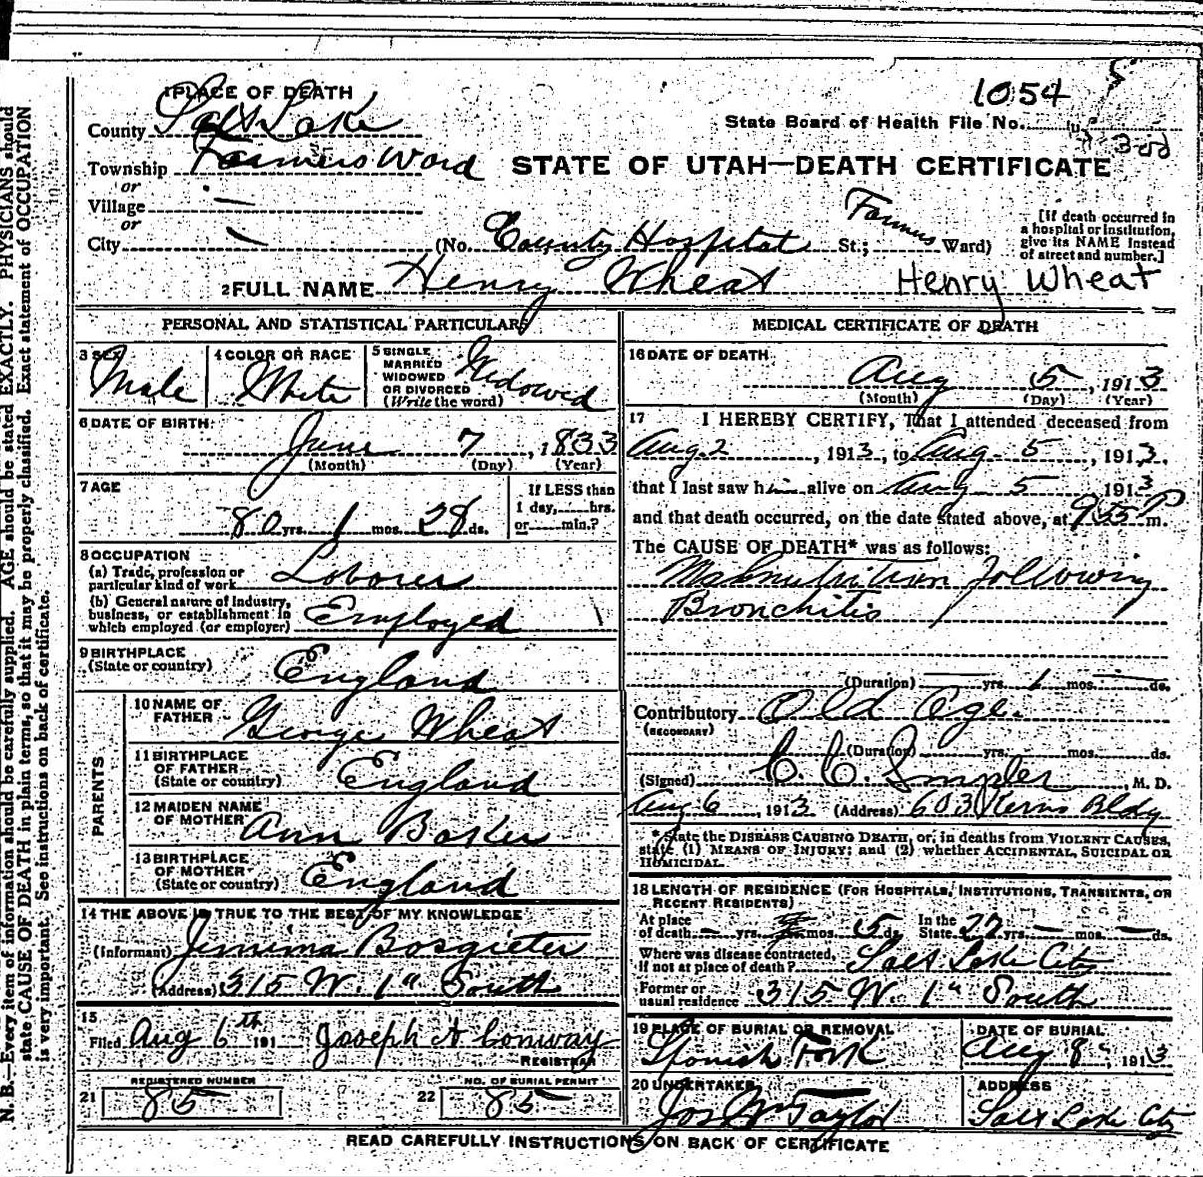 1054
5
State Board of Health File No.
3rd
1 PLACE OF DEATH
County Salt Lake
Township Farmers Ward
or
Village —
or
City —
STATE OF UTAH—DEATH CERTIFICATE
(No. County Hospital St.; Farmers Ward)
[If death occurred in
a hospital or institution,
give its NAME instead
of street and number.]
2 FULL NAME Henry Wheat Henry Wheat
PERSONAL AND STATISTICAL PARTICULARS
3 SEX Male
4 COLOR OR RACE White
5 SINGLE
MARRIED
WIDOWED
OR DIVORCED
(Write the word) Widowed
6 DATE OF BIRTH:
June 7, 1833
(Month) (Day) (Year)
7 AGE
80 yrs. 1 mos. 28 ds.
If LESS than
1 day,....hrs.
or....min.?
8 OCCUPATION
(a) Trade, profession or
particular kind of work Laborer
(b) General nature of industry,
business, or establishment in
which employed (or employer) Employed
9 BIRTHPLACE
(State or country) England
PARENTS
10 NAME OF
FATHER George Wheat
11 BIRTHPLACE
OF FATHER
(State or country) England
12 MAIDEN NAME
OF MOTHER Ann Baker
13 BIRTHPLACE
OF MOTHER
(State or country) England
14 THE ABOVE IS TRUE TO THE BEST OF MY KNOWLEDGE
(Informant) Jemima Bosgieter
(Address) 315 W. 1" South
15
Filed Aug 6th 191 Joseph A Conway
REGISTRAR
REGISTERED NUMBER
21 85
NO. OF BURIAL PERMIT
22 85
MEDICAL CERTIFICATE OF DEATH
16 DATE OF DEATH
Aug 5, 1913
(Month) (Day) (Year)
17 I HEREBY CERTIFY, That I attended deceased from
Aug 2, 1913, to Aug 5, 1913,
that I last saw him alive on Aug 5 1913
and that death occurred, on the date stated above, at 9 55 P m.
The CAUSE OF DEATH* was as follows:
Malnutrition following
Bronchitis
(Duration) — yrs. 1 mos. — ds.
Contributory Old Age.
(SECONDARY)
(Duration) yrs. mos. ds.
(Signed) C. C. M. D.
Aug 6, 1913 (Address) 603 Kerns Bldg
*State the DISEASE CAUSING DEATH, or, in deaths from VIOLENT CAUSES,
state (1) MEANS OF INJURY; and (2) whether ACCIDENTAL, SUICIDAL OR
HOMICIDAL.
18 LENGTH OF RESIDENCE (FOR HOSPITALS, INSTITUTIONS, TRANSIENTS, OR
RECENT RESIDENTS)
At place
of death — yrs. mos. 5 ds. In the
State 22 yrs. — mos. — ds.
Where was disease contracted,
if not at place of death? Salt Lake City
Former or
usual residence 315 W. 1" South
19 PLACE OF BURIAL OR REMOVAL
Spanish Fork
DATE OF BURIAL
Aug 8", 1913
20 UNDERTAKER
Jos Wm Taylor
ADDRESS
Salt Lake City
READ CAREFULLY INSTRUCTIONS ON BACK OF CERTIFICATE
N. B.—Every item of information should be carefully supplied. AGE should be stated EXACTLY. PHYSICIANS should
state CAUSE OF DEATH in plain terms, so that it may be properly classified. Exact statement of OCCUPATION
is very important. See instructions on back of certificate.